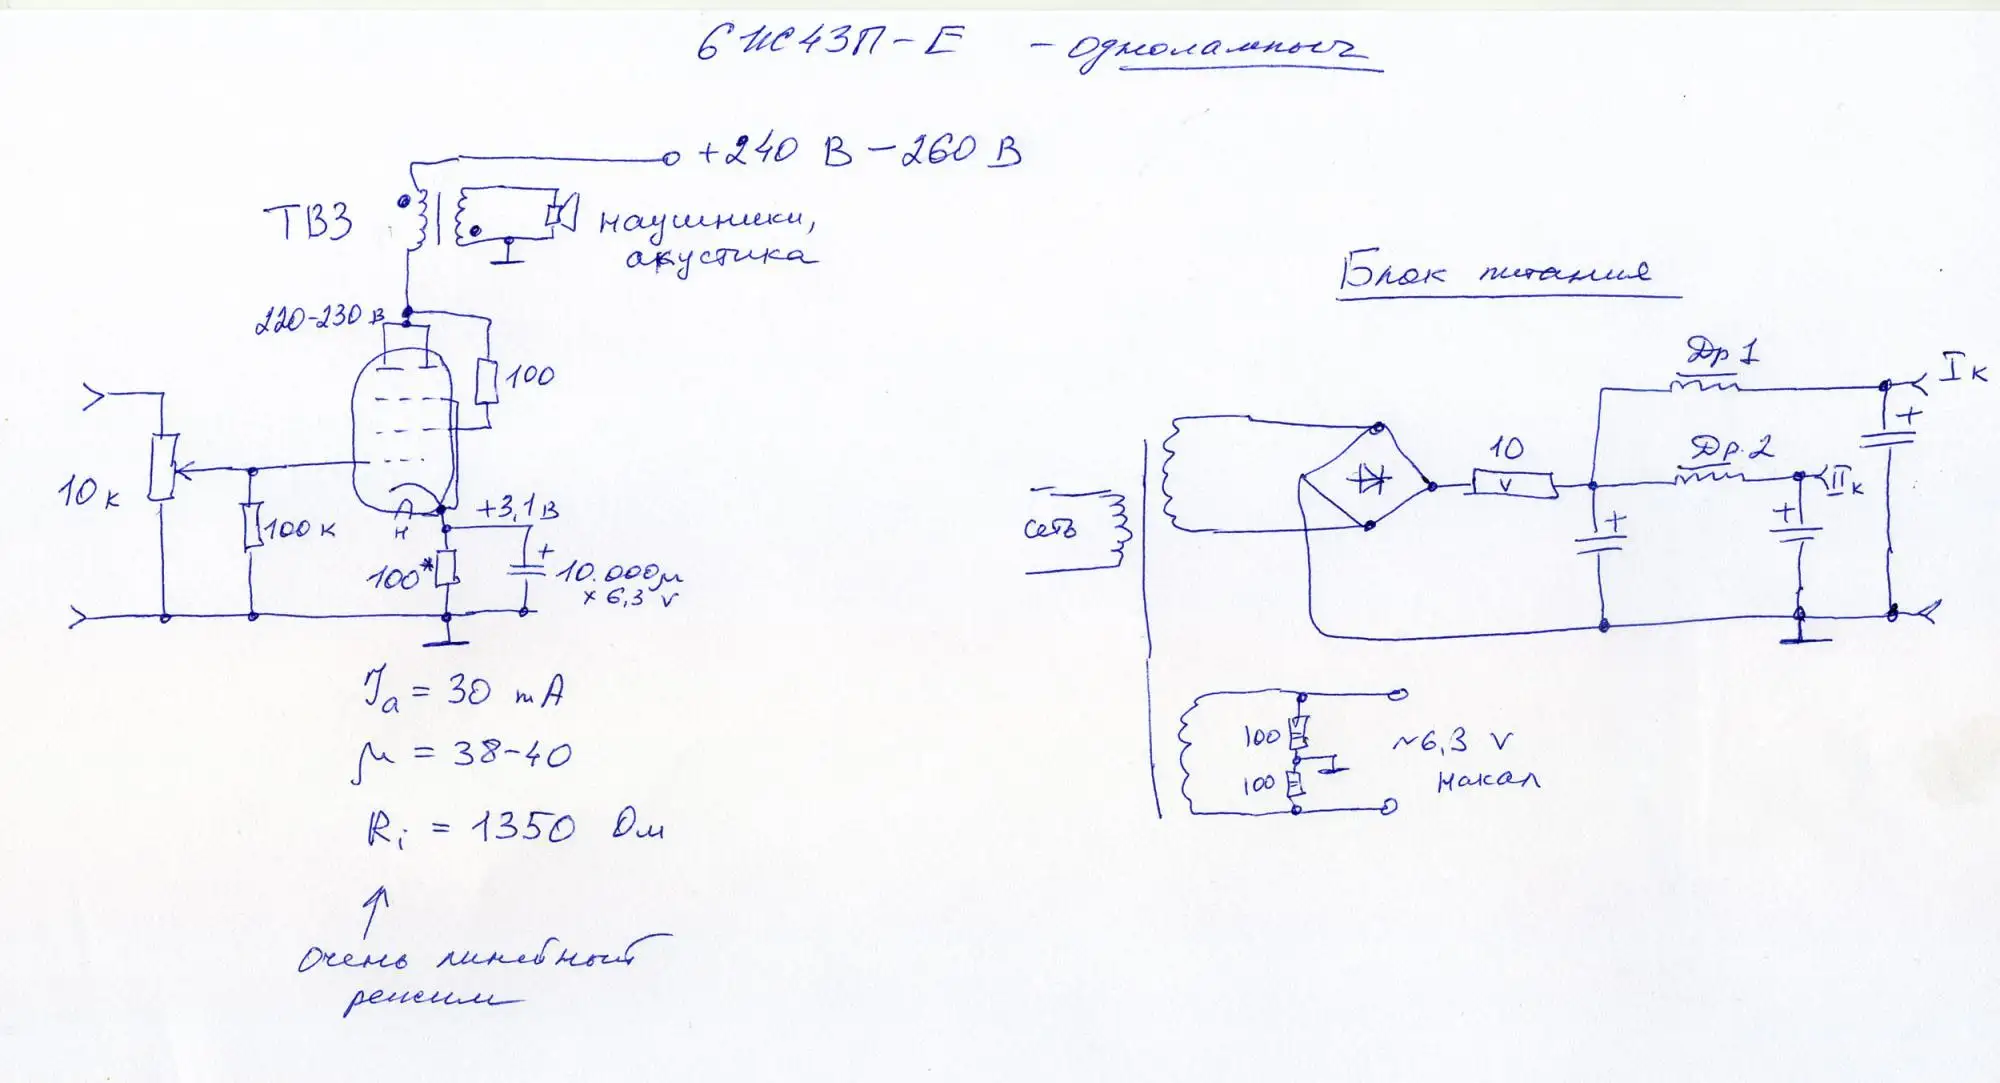 6Ж43П-Е - одноламповый
+240 В - 260 В
ТВЗ
наушники,
акустика
220-230 в
100
10 к
100 к
н
+3,1 в
100*
10.000 м
× 6,3 v
Ja = 30 mA
μ = 38-40
Ri = 1350 Ом
↑
очень линейный
режим
Блок питания
Др 1
I к
+
10
v
Др. 2
II к
+
+
сеть
100
100
~6,3 v
накал